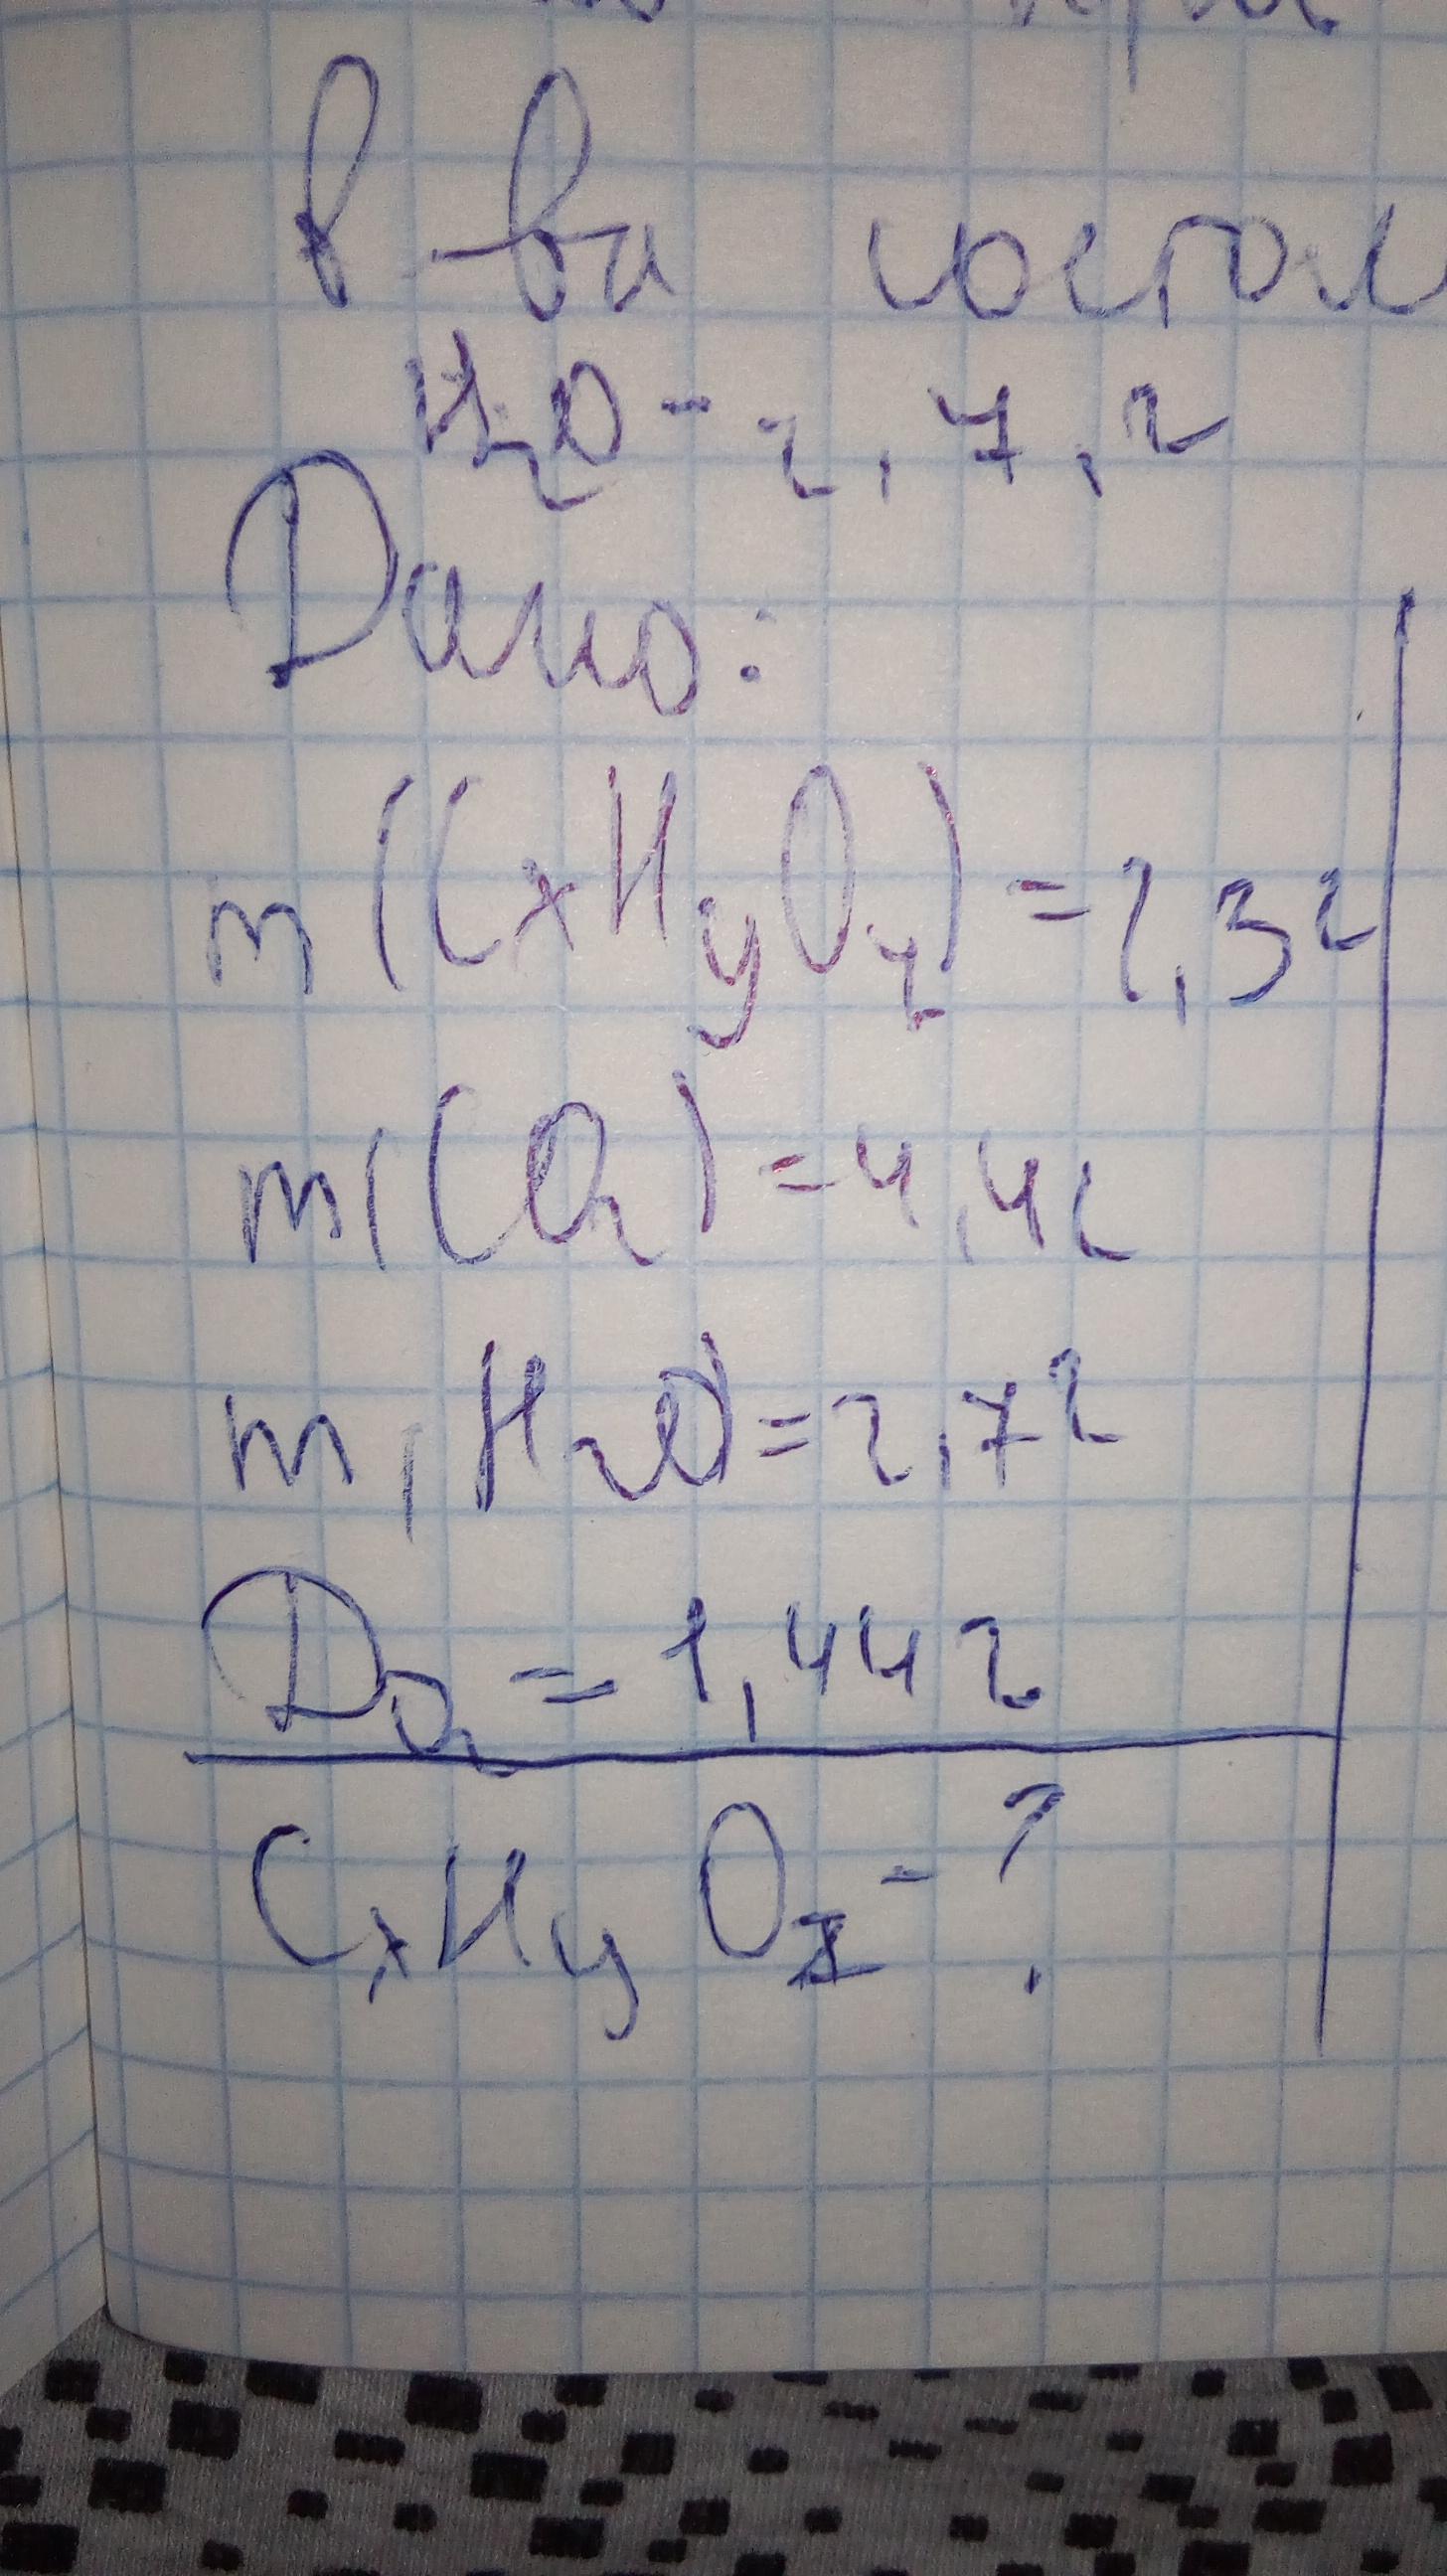 в-ва состав
H₂O - 2,7 г
Дано:
m(CxHyOz) = 2,3 г
m(CO₂) = 4,4 г
m(H₂O) = 2,7 г
D O₂ = 1,44 г
CxHyOz - ?